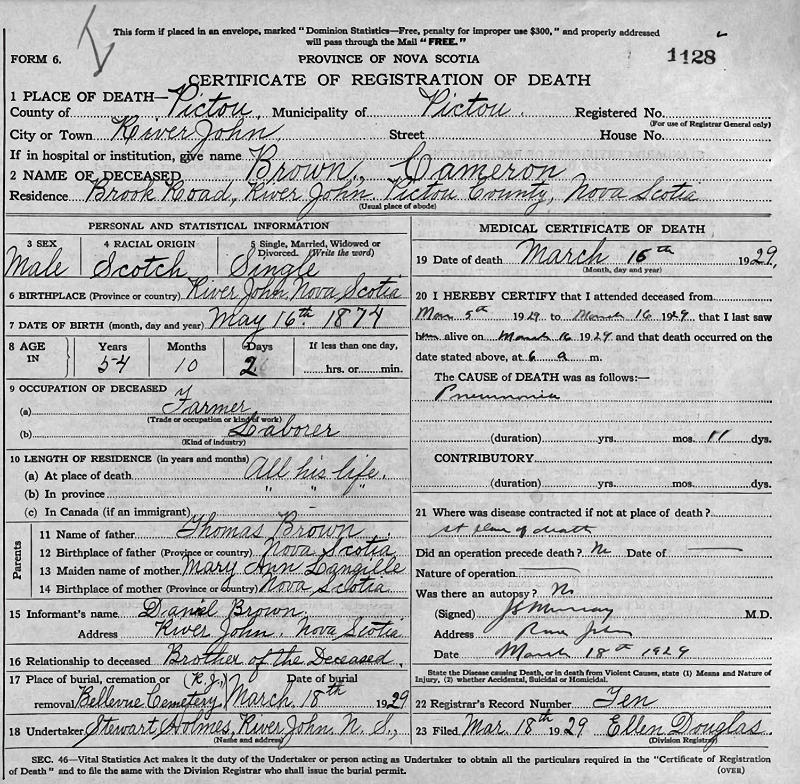 This form if placed in an envelope, marked "Dominion Statistics—Free, penalty for improper use $300," and properly addressed
will pass through the Mail "FREE."
1128
FORM 6.
PROVINCE OF NOVA SCOTIA
CERTIFICATE OF REGISTRATION OF DEATH
1 PLACE OF DEATH—
County of Pictou. Municipality of Pictou. Registered No.
(For use of Registrar General only)
City or Town River John Street House No.
If in hospital or institution, give name
2 NAME OF DECEASED Brown, Cameron
Residence Brook Road, River John. Pictou County, Nova Scotia
(Usual place of abode)
PERSONAL AND STATISTICAL INFORMATION
3 SEX 4 RACIAL ORIGIN 5 Single, Married, Widowed or Divorced. (Write the word)
Male Scotch Single
6 BIRTHPLACE (Province or country) River John, Nova Scotia
7 DATE OF BIRTH (month, day and year) May 16th 1874
8 AGE IN Years Months Days If less than one day,
54 10 2 hrs. or min.
9 OCCUPATION OF DECEASED
(a) Farmer
(Trade or occupation or kind of work)
(b) Laborer
(Kind of industry)
10 LENGTH OF RESIDENCE (in years and months)
(a) At place of death All his life.
(b) In province " " "
(c) In Canada (if an immigrant) -
Parents
11 Name of father Thomas Brown
12 Birthplace of father (Province or country) Nova Scotia
13 Maiden name of mother Mary Ann Langille
14 Birthplace of mother (Province or country) Nova Scotia
15 Informant's name Daniel Brown.
Address River John. Nova Scotia
16 Relationship to deceased Brother of the Deceased.
17 Place of burial, cremation or removal (R.J.) Date of burial
Bellevue Cemetery March 18th 1929
18 Undertaker Stewart Holmes, River John, N. S.,
(Name and address)
MEDICAL CERTIFICATE OF DEATH
19 Date of death March 16th 1929.
(Month, day and year)
20 I HEREBY CERTIFY that I attended deceased from
Mar 5th 1929 to March 16 1929 that I last saw
him alive on March 16 1929 and that death occurred on the
date stated above, at 6 a m.
The CAUSE of DEATH was as follows:—
Pneumonia
(duration) yrs. mos. 11 dys.
CONTRIBUTORY
(duration) yrs. mos. dys.
21 Where was disease contracted if not at place of death?
at place of death
Did an operation precede death? No Date of
Nature of operation
Was there an autopsy? No
(Signed) Murray M.D.
Address River John
Date March 18th 1929
State the Disease causing Death, or in death from Violent Causes, state (1) Means and Nature of
Injury, (2) whether Accidental, Suicidal or Homicidal.
22 Registrar's Record Number Ten
23 Filed Mar. 18th 1929 Ellen Douglas.
(Division Registrar)
SEC. 46—Vital Statistics Act makes it the duty of the Undertaker or person acting as Undertaker to obtain all the particulars required in the "Certificate of Registration
of Death" and to file the same with the Division Registrar who shall issue the burial permit. (OVER)